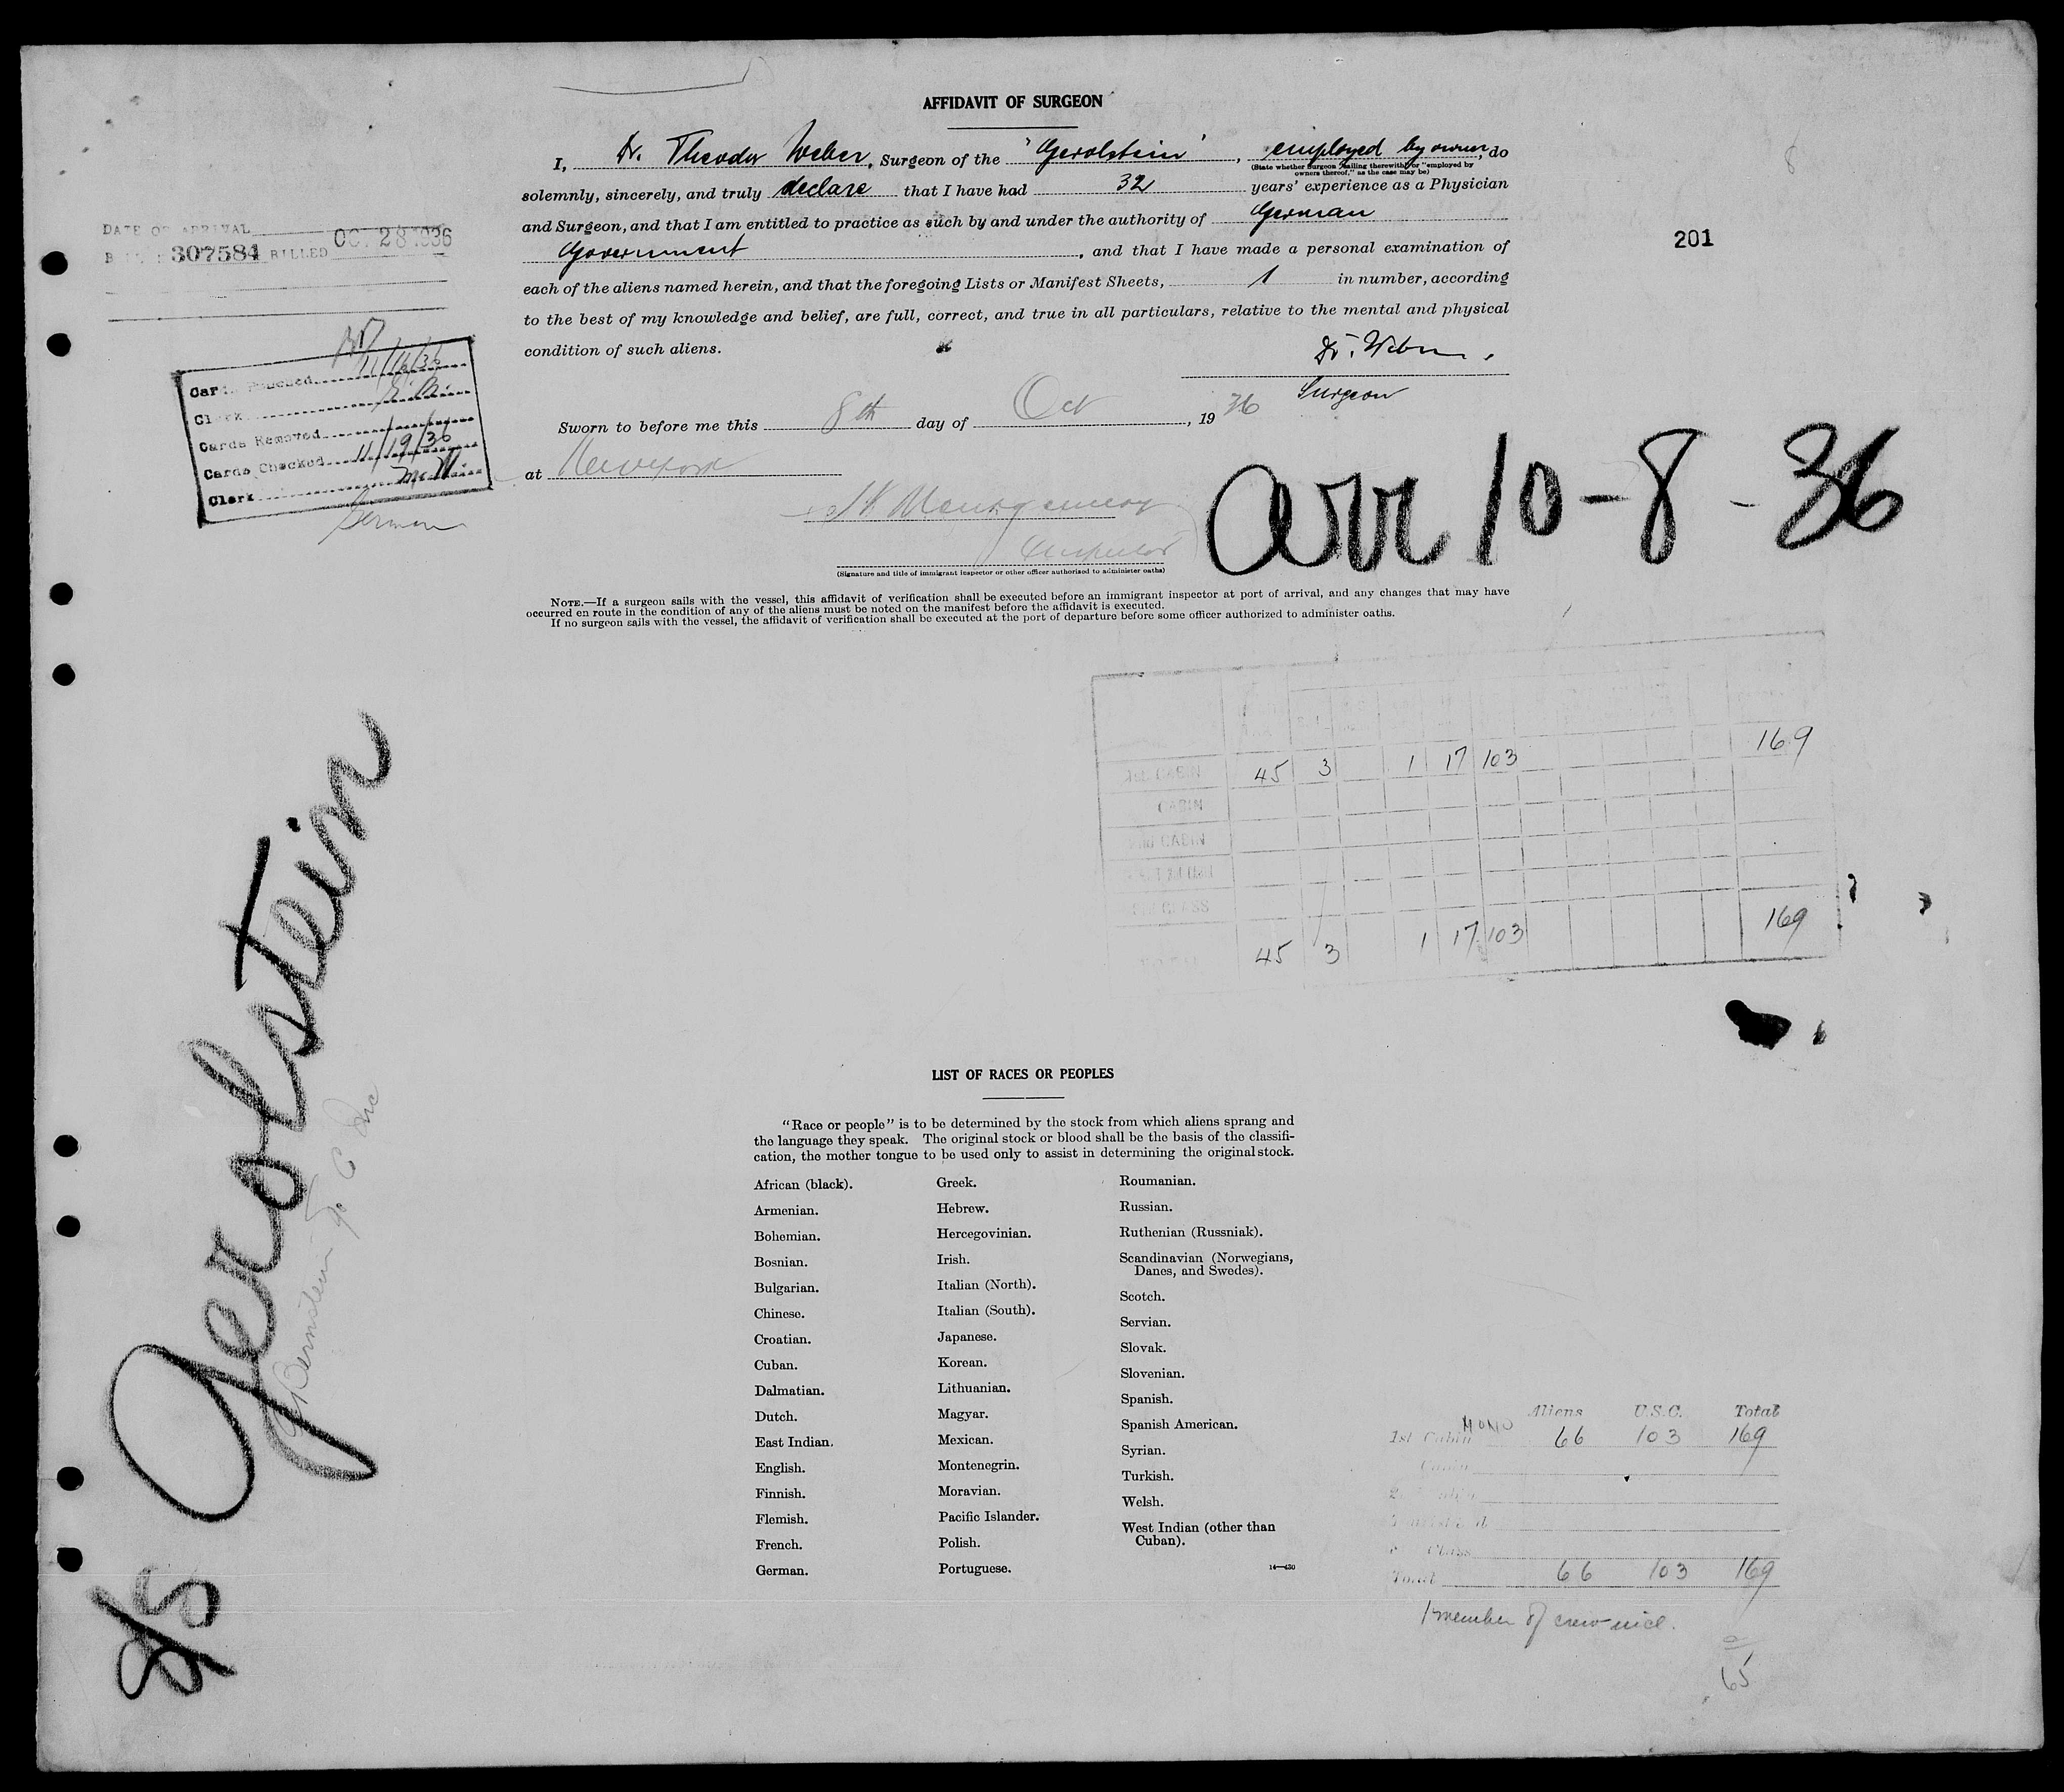 AFFIDAVIT OF SURGEON
I, Dr. Theodor Weber, Surgeon of the "Gerolstein", employed by owner, do
(State whether Surgeon sailing therewith or "employed by
owners thereof," as the case may be)
solemnly, sincerely, and truly declare that I have had 32 years' experience as a Physician
and Surgeon, and that I am entitled to practice as such by and under the authority of German
Government, and that I have made a personal examination of
each of the aliens named herein, and that the foregoing Lists or Manifest Sheets, 1 in number, according
to the best of my knowledge and belief, are full, correct, and true in all particulars, relative to the mental and physical
condition of such aliens.
Dr. Weber.
Surgeon
Sworn to before me this 8th day of Oct, 1936
at New York
Montgomery
Inspector
(Signature and title of immigrant inspector or other officer authorized to administer oaths)
NOTE.—If a surgeon sails with the vessel, this affidavit of verification shall be executed before an immigrant inspector at port of arrival, and any changes that may have
occurred en route in the condition of any of the aliens must be noted on the manifest before the affidavit is executed.
If no surgeon sails with the vessel, the affidavit of verification shall be executed at the port of departure before some officer authorized to administer oaths.
DATE OF ARRIVAL
307584 BILLED OCT 28 1936
Cards Punched 11/16/36
Clerk
Cards Removed
Cards Checked 11/19/36
Clerk McN.
German
201
8
arr 10-8-36
1st CABIN 45 3 1 17 103 169
CABIN
CABIN
TOTAL 45 3 1 17 103 169
SS Gerolstein
Bernstein
LIST OF RACES OR PEOPLES
"Race or people" is to be determined by the stock from which aliens sprang and
the language they speak. The original stock or blood shall be the basis of the classifi-
cation, the mother tongue to be used only to assist in determining the original stock.
African (black).
Armenian.
Bohemian.
Bosnian.
Bulgarian.
Chinese.
Croatian.
Cuban.
Dalmatian.
Dutch.
East Indian.
English.
Finnish.
Flemish.
French.
German.
Greek.
Hebrew.
Hercegovinian.
Irish.
Italian (North).
Italian (South).
Japanese.
Korean.
Lithuanian.
Magyar.
Mexican.
Montenegrin.
Moravian.
Pacific Islander.
Polish.
Portuguese.
Roumanian.
Russian.
Ruthenian (Russniak).
Scandinavian (Norwegians,
Danes, and Swedes).
Scotch.
Servian.
Slovak.
Slovenian.
Spanish.
Spanish American.
Syrian.
Turkish.
Welsh.
West Indian (other than
Cuban).
14—430
Aliens U.S.C. Total
1st Cabin 66 103 169
Cabin
Class
Total 66 103 169
1 member of crew
65